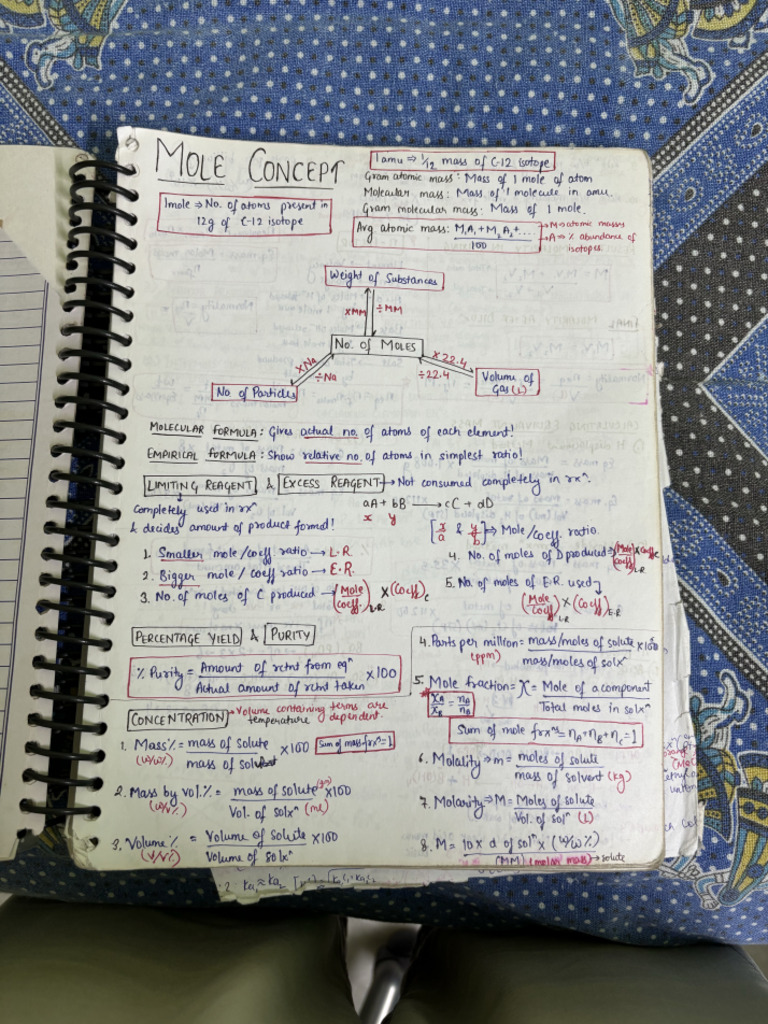 MOLE CONCEPT
1 amu ⇒ 1/12 mass of C-12 isotope
Gram atomic mass: Mass of 1 mole of atom
Molecular mass: Mass of 1 molecule in amu.
Gram molecular mass: Mass of 1 mole.
1mole ⇒ No. of atoms present in
12g of C-12 isotope
Avg atomic mass: M₁A₁+M₂A₂+...
100
→ M → atomic masses
→ A → % abundance of
isotopes.
Weight of Substances
×MM ÷MM
No. of MOLES
×Na
÷Na
×22.4
÷22.4
No. of Particles
Volume of
Gas (L)
MOLECULAR FORMULA: Gives actual no. of atoms of each element!
EMPIRICAL FORMULA: Show relative no. of atoms in simplest ratio!
LIMITING REAGENT & EXCESS REAGENT → Not consumed completely in rxⁿ.
completely used in rxⁿ
& decides amount of product formed!
aA + bB → cC + dD
x y
[x/a & y/b] ⇒ Mole/coeff. ratio.
1. Smaller mole/coeff ratio → L.R.
2. Bigger mole/coeff ratio → E.R.
3. No. of moles of C produced → (Mole/Coeff.)L.R × (Coeff)C
4. No. of moles of D produced → (Mole/Coeff)L.R × Coeff
5. No. of moles of E.R. used
(Mole/Coeff)L.R × (Coeff)E.R
PERCENTAGE YIELD & PURITY
% Purity = Amount of rctnt from eqⁿ ×100
Actual amount of rctnt taken
CONCENTRATION → Volume containing terms are
temperature dependent.
1. Mass% = mass of solute ×100
(w/w%) mass of solvent
Sum of mass frxⁿs=1
2. Mass by vol.% = mass of solute (gm) ×100
(w/v%) Vol. of solxⁿ (ml)
3. Volume % = Volume of solute ×100
(v/v%) Volume of solxⁿ
4. Parts per million = mass/moles of solute ×10⁶
(ppm) mass/moles of solxⁿ
5. Mole fraction = χ = Mole of a component
Total moles in solxⁿ
* χA/χB = nA/nB
Sum of mole frxⁿs = nA+nB+nC=1
6. Molality ⇒ m = moles of solute
mass of solvent (kg)
7. Molarity ⇒ M = Moles of solute
Vol. of solⁿ (L)
8. M = 10 × d of solⁿ × (w/w%)
(MM) (molar mass) → solute